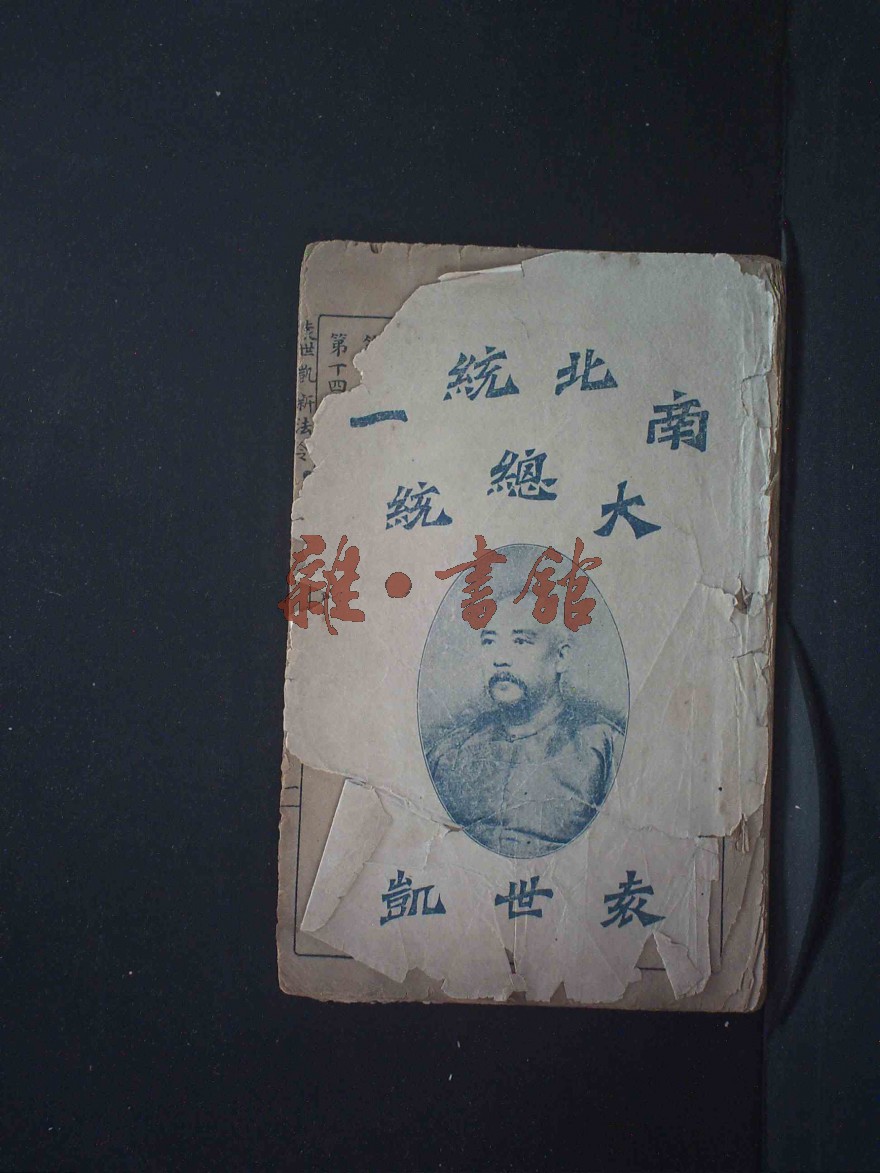 南北統一
大總統
袁世凱
雜·書館
第十四
袁世凱新法令